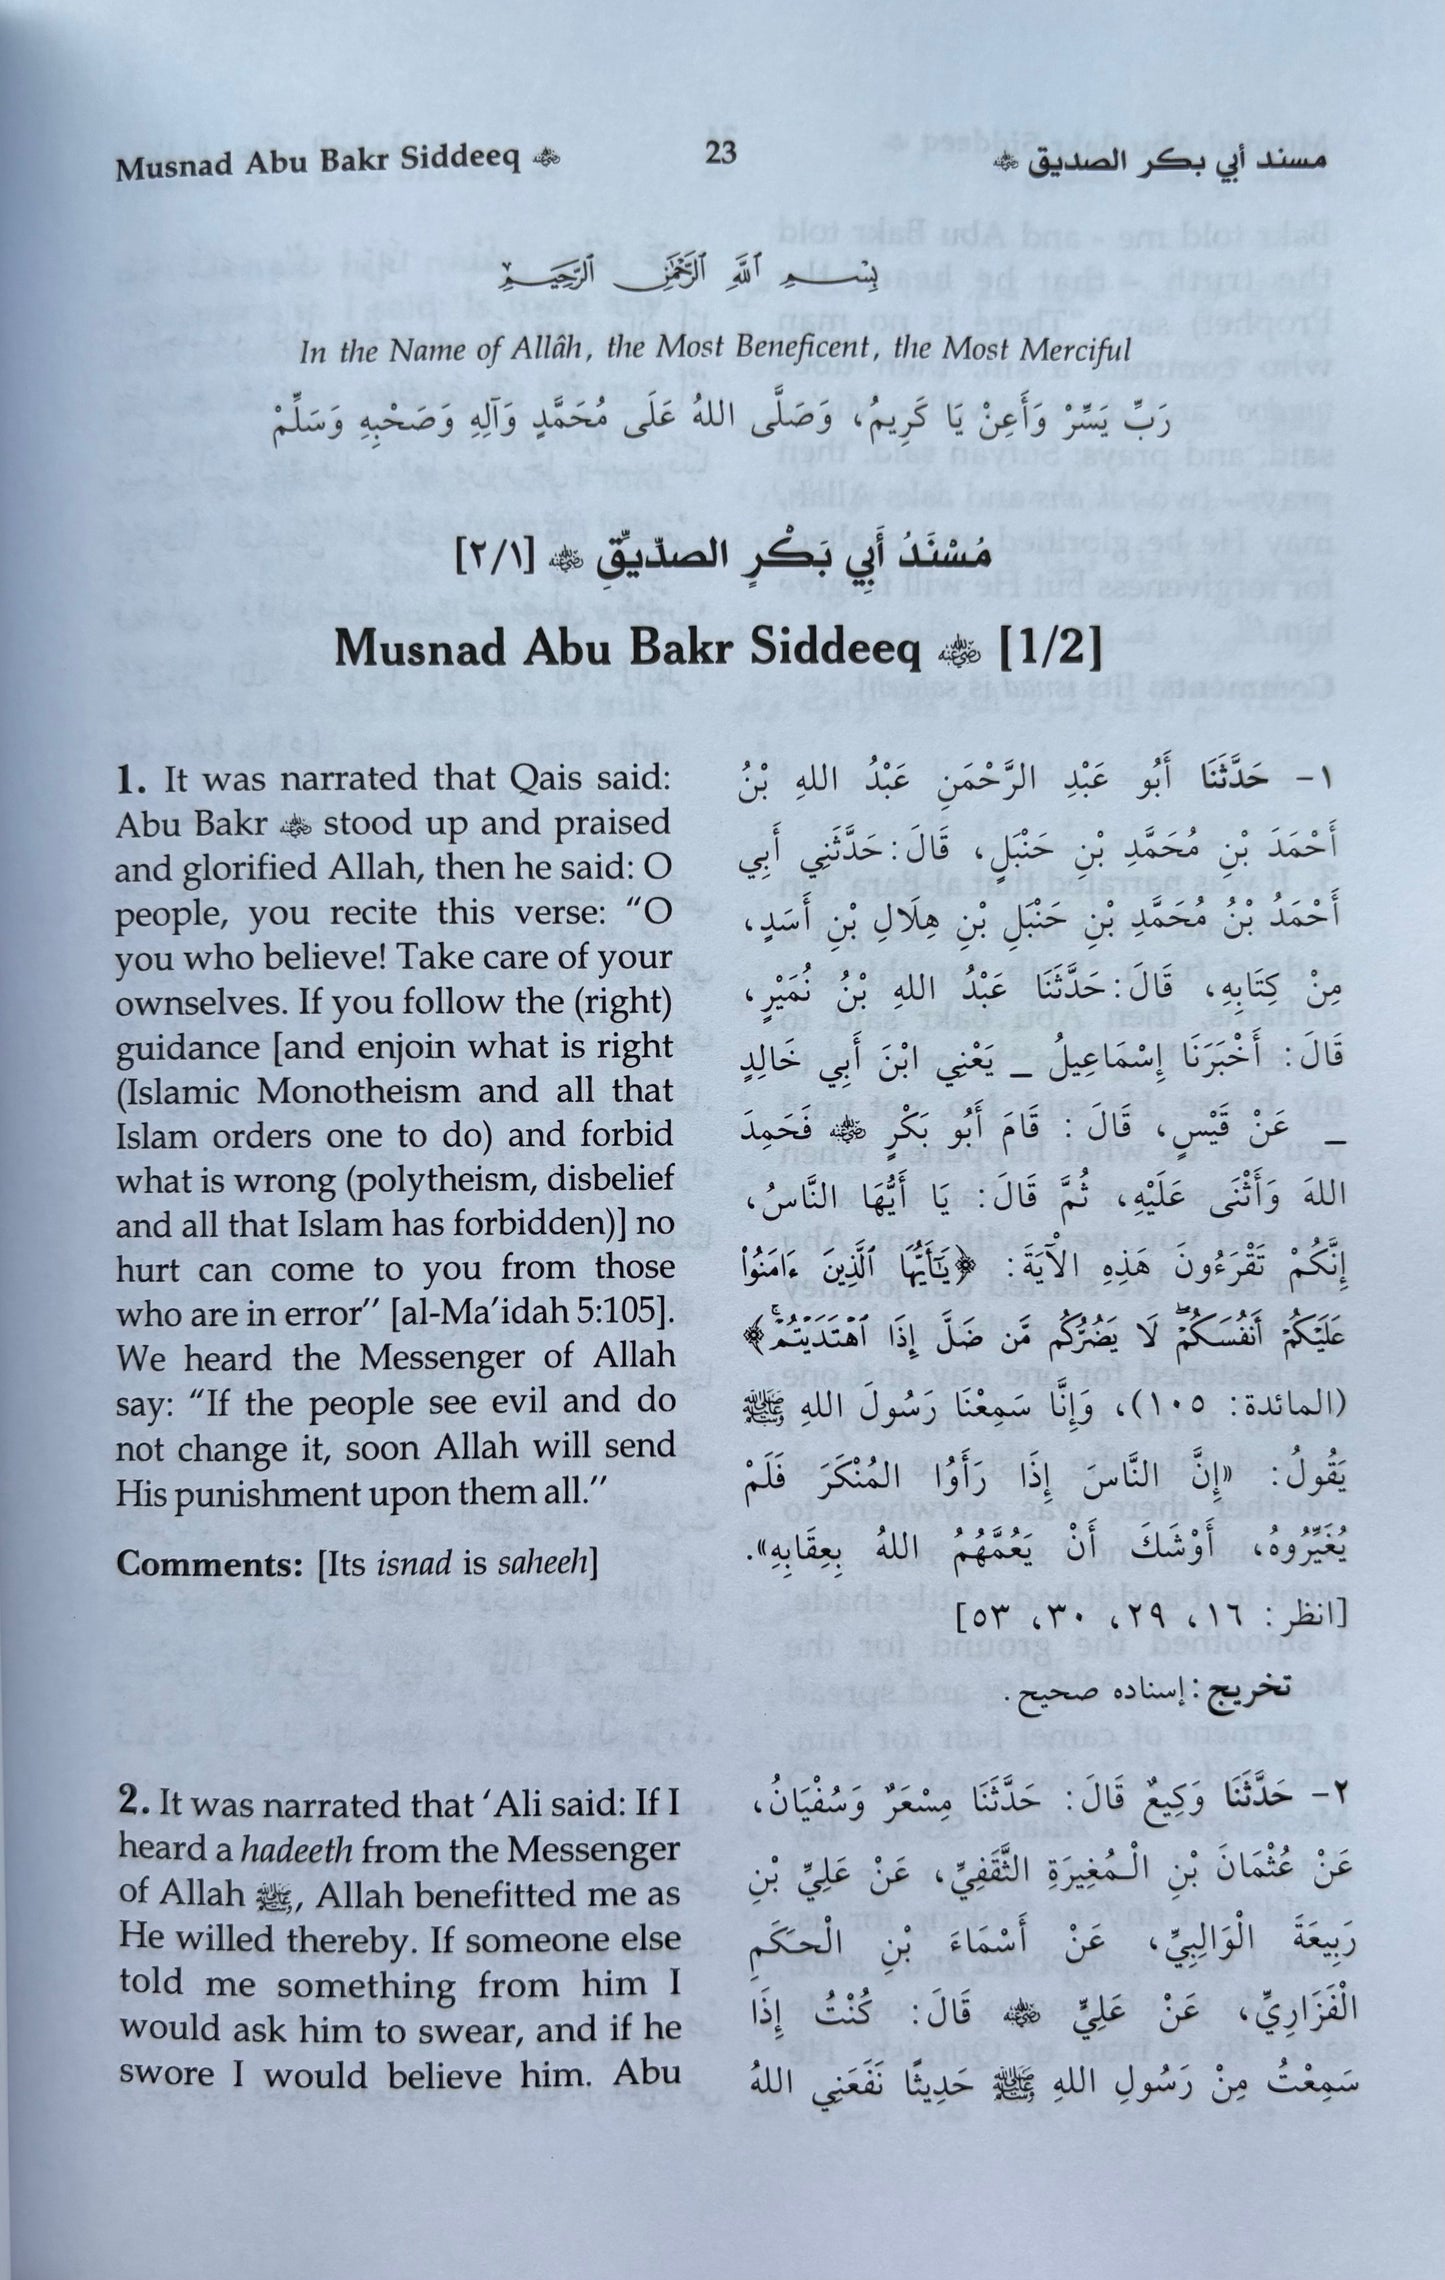 Musnad Abu Bakr Siddeeq رضي الله عنه 23 مسند أبي بكر الصديق رضي الله عنه
بِسْمِ ٱللَّهِ ٱلرَّحْمَٰنِ ٱلرَّحِيمِ
In the Name of Allâh, the Most Beneficent, the Most Merciful
رَبِّ يَسِّرْ وَأَعِنْ يَا كَرِيمُ، وَصَلَّى اللهُ عَلَى مُحَمَّدٍ وَآلِهِ وَصَحْبِهِ وَسَلِّمْ
مُسْنَدُ أَبِي بَكْرٍ الصدِّيقِّ رضي الله عنه [٢/١]
Musnad Abu Bakr Siddeeq رضي الله عنه [1/2]
1. It was narrated that Qais said:
Abu Bakr رضي الله عنه stood up and praised
and glorified Allah, then he said: O
people, you recite this verse: “O
you who believe! Take care of your
ownselves. If you follow the (right)
guidance [and enjoin what is right
(Islamic Monotheism and all that
Islam orders one to do) and forbid
what is wrong (polytheism, disbelief
and all that Islam has forbidden)] no
hurt can come to you from those
who are in error” [al-Ma’idah 5:105].
We heard the Messenger of Allah
say: “If the people see evil and do
not change it, soon Allah will send
His punishment upon them all.”
Comments: [Its isnad is saheeh]
١- حَدَّثَنَا أَبُو عَبْدِ الرَّحْمَنِ عَبْدُ اللهِ بْنُ
أَحْمَدَ بْنِ مُحَمَّدِ بْنِ حَنْبَلٍ، قَالَ: حَدَّثَنِي أَبِي
أَحْمَدُ بْنُ مُحَمَّدِ بْنِ حَنْبَلِ بْنِ هِلَالِ بْنِ أَسَدٍ،
مِنْ كِتَابِهِ، قَالَ: حَدَّثَنَا عَبْدُ اللهِ بْنُ نُمَيْرٍ،
قَالَ: أَخْبَرَنَا إِسْمَاعِيلُ _ يَعْنِي ابْنَ أَبِي خَالِدٍ
_ عَنْ قَيْسٍ، قَالَ: قَامَ أَبُو بَكْرٍ رضي الله عنه فَحَمِدَ
اللهَ وَأَثْنَى عَلَيْهِ، ثُمَّ قَالَ: يَا أَيُّهَا النَّاسُ،
إِنَّكُمْ تَقْرَءُونَ هَذِهِ الْآيَةَ: ﴿يَٰٓأَيُّهَا ٱلَّذِينَ ءَامَنُوا۟
عَلَيْكُمْ أَنفُسَكُمْ ۖ لَا يَضُرُّكُم مَّن ضَلَّ إِذَا ٱهْتَدَيْتُمْ ۚ﴾
(المائدة: ١٠٥)، وَإِنَّا سَمِعْنَا رَسُولَ اللهِ ﷺ
يَقُولُ: «إِنَّ النَّاسَ إِذَا رَأَوُا المُنْكَرَ فَلَمْ
يُغَيِّرُوهُ، أَوْشَكَ أَنْ يَعُمَّهُمُ اللهُ بِعِقَابِهِ».
[انظر: ١٦، ٢٩، ٣٠، ٥٣]
تخريج: إسناده صحيح.
2. It was narrated that ‘Ali said: If I
heard a hadeeth from the Messenger
of Allah ﷺ, Allah benefitted me as
He willed thereby. If someone else
told me something from him I
would ask him to swear, and if he
swore I would believe him. Abu
٢- حَدَّثَنَا وَكِيعٌ قَالَ: حَدَّثَنَا مِسْعَرٌ وَسُفْيَانُ،
عَنْ عُثْمَانَ بْنِ الْمُغِيرَةِ الثَّقَفِيِّ، عَنْ عَلِيِّ بْنِ
رَبِيعَةَ الْوَالِبِيِّ، عَنْ أَسْمَاءَ بْنِ الْحَكَمِ
الْفَزَارِيِّ، عَنْ عَلِيٍّ رضي الله عنه قَالَ: كُنْتُ إِذَا
سَمِعْتُ مِنْ رَسُولِ اللهِ ﷺ حَدِيثًا نَفَعَنِي اللهُ